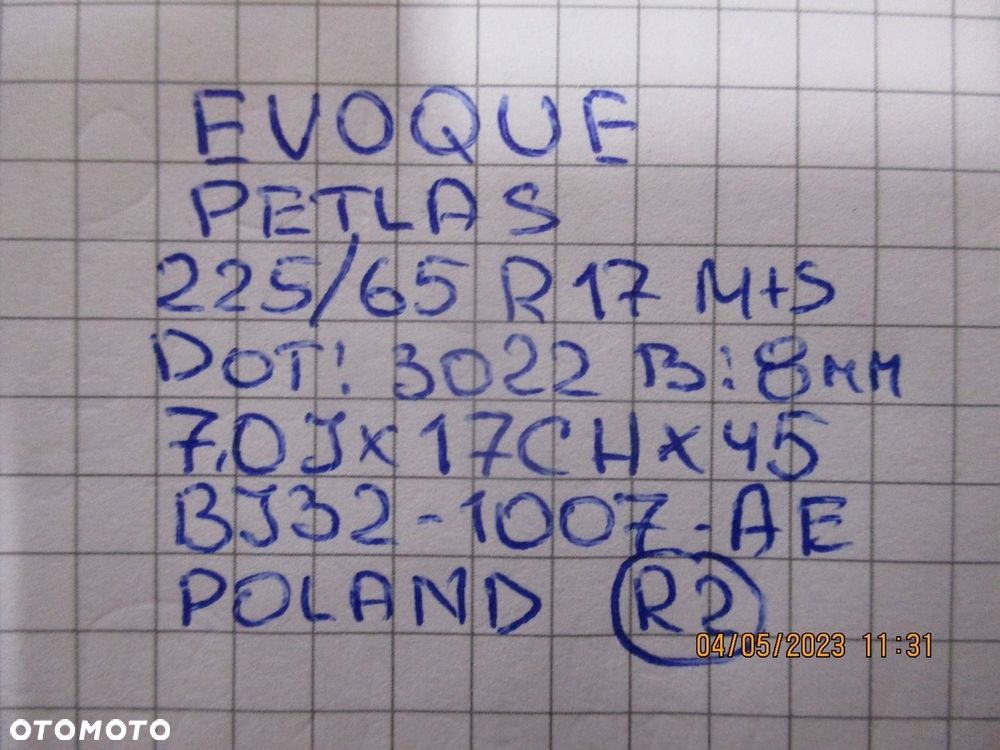 EVOQUE
PETLAS
225/65 R 17 M+S
DOT: 3022 B: 8mm
7,0Jx17CHx45
BJ32-1007-AE
POLAND R2
04/05/2023 11:31
OTOMOTO